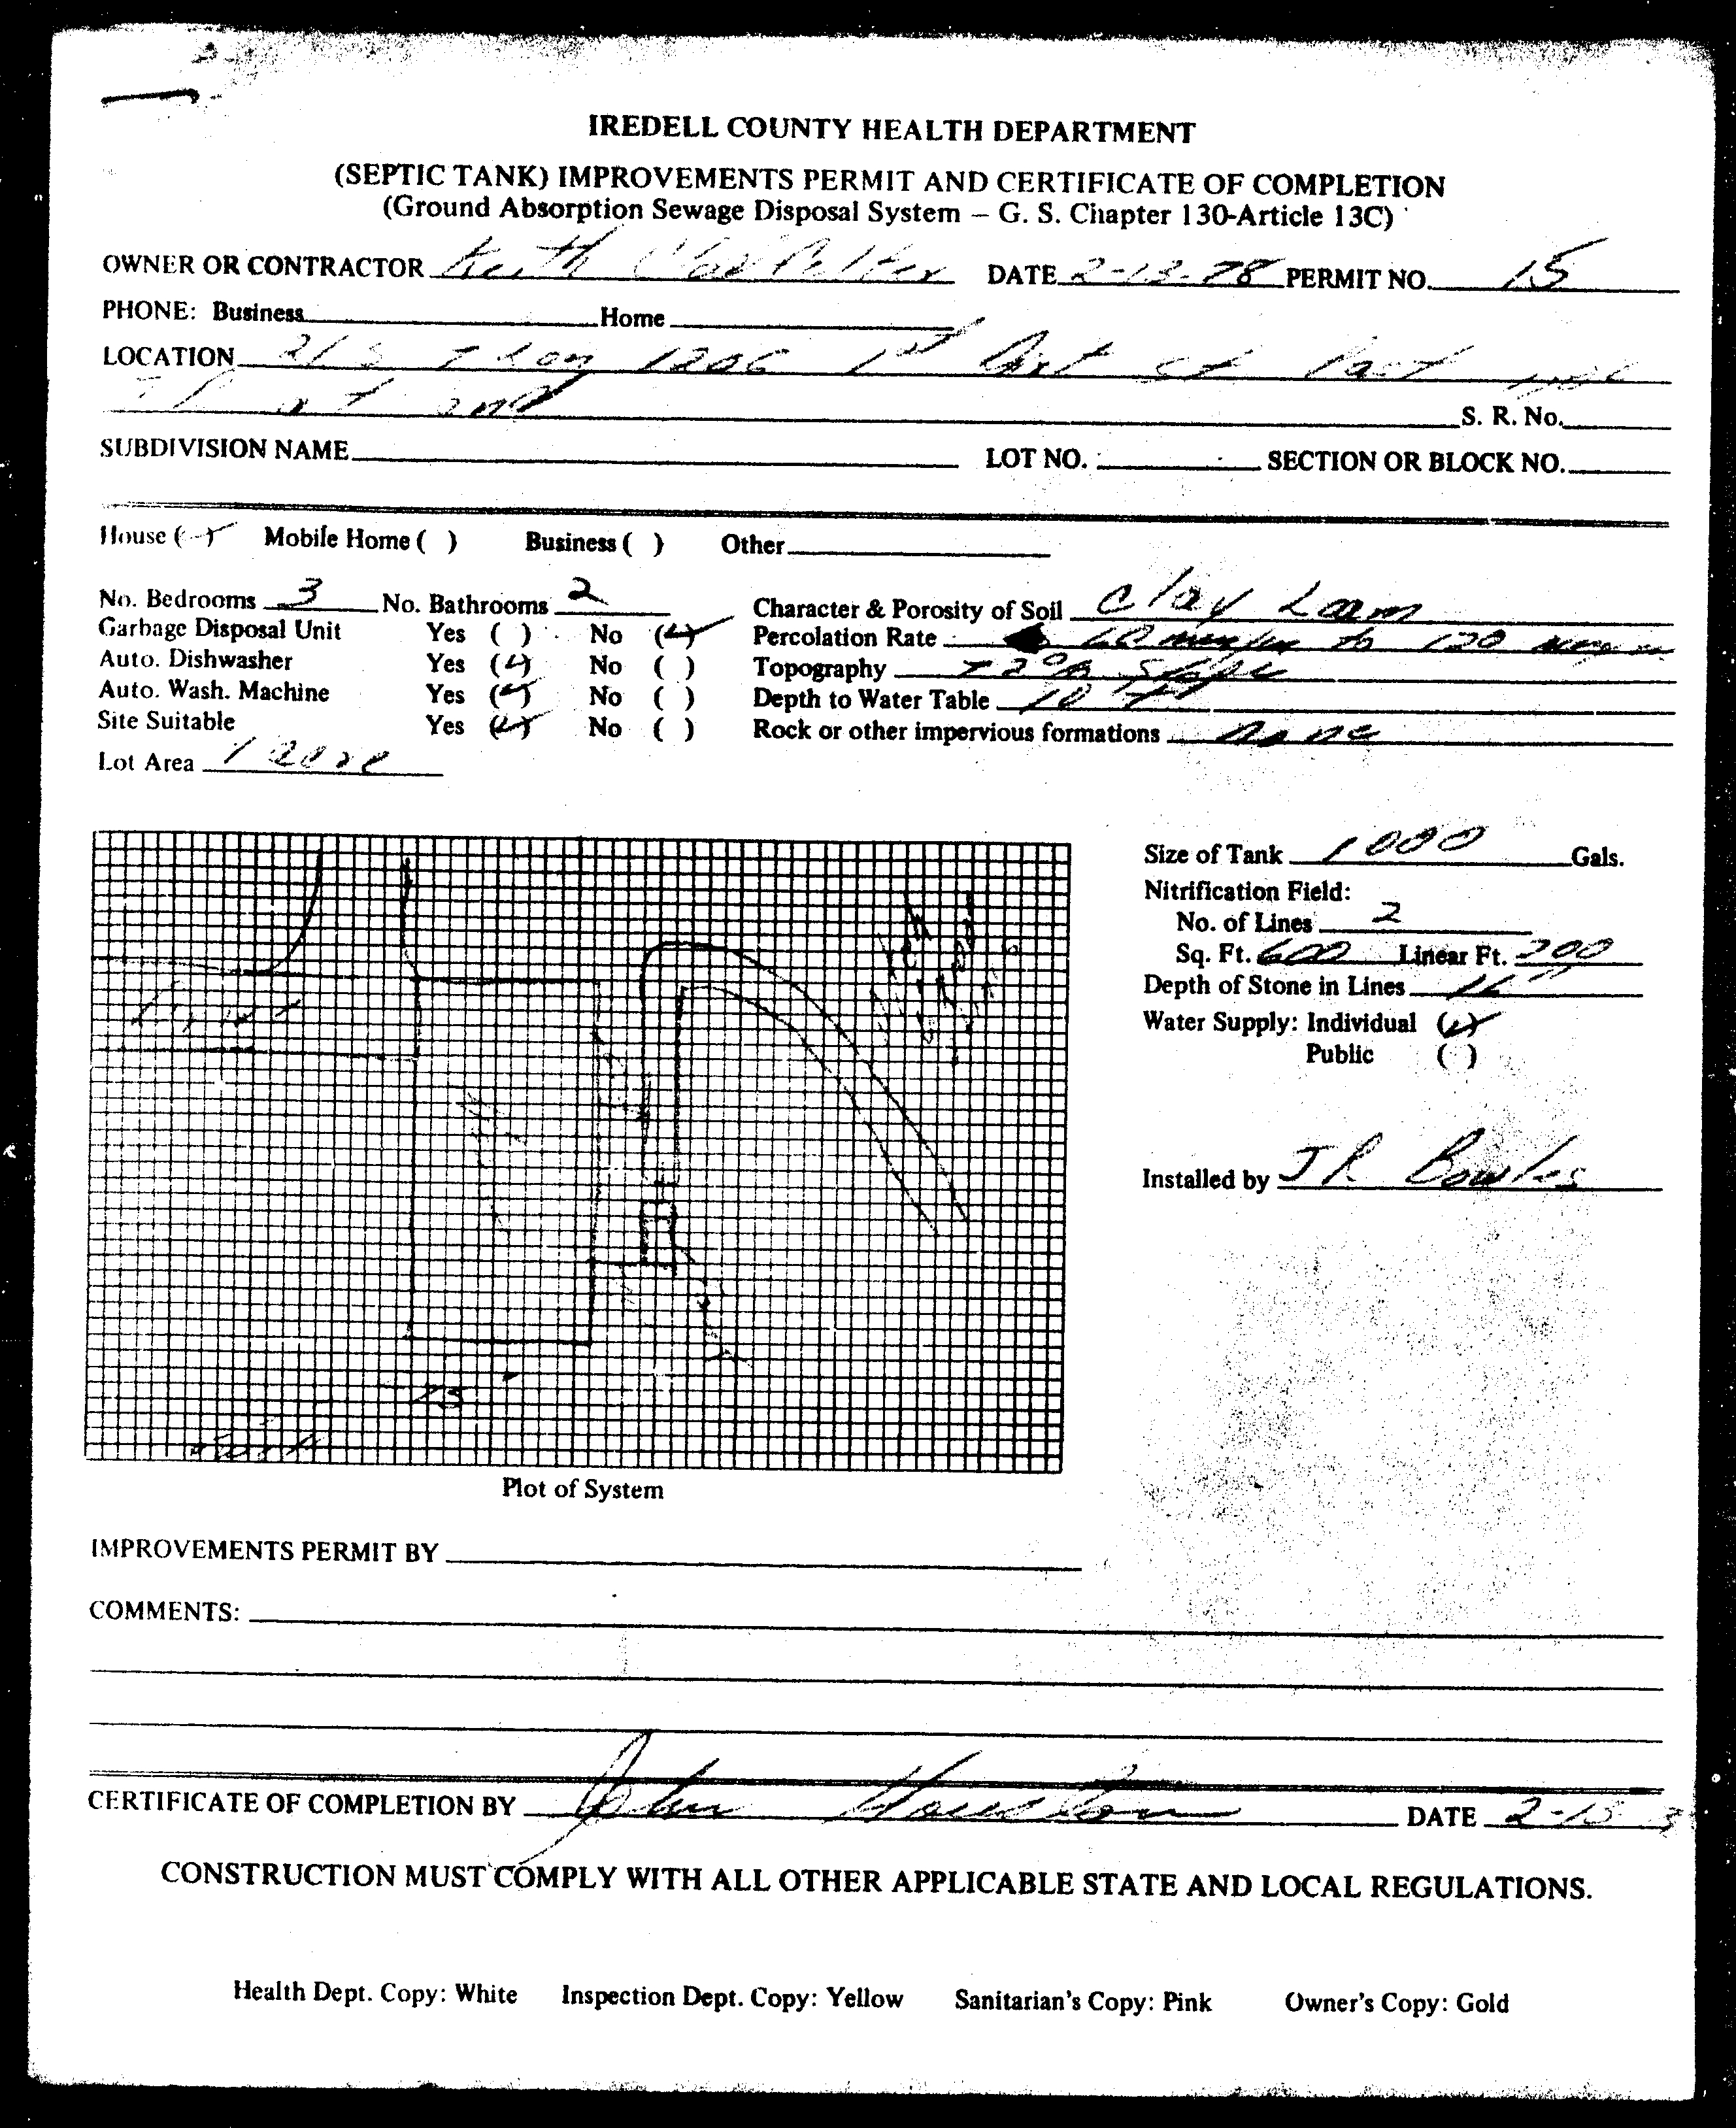 IREDELL COUNTY HEALTH DEPARTMENT
(SEPTIC TANK) IMPROVEMENTS PERMIT AND CERTIFICATE OF COMPLETION
(Ground Absorption Sewage Disposal System – G. S. Chapter 130-Article 13C)
OWNER OR CONTRACTOR Keith DATE 2-13-78 PERMIT NO. 15
PHONE: Business Home
LOCATION 1206 1st st Past
at end S. R. No.
SUBDIVISION NAME LOT NO. SECTION OR BLOCK NO.
House (✓) Mobile Home ( ) Business ( ) Other
No. Bedrooms 3 No. Bathrooms 2 Character & Porosity of Soil Clay Loam
Garbage Disposal Unit Yes ( ) No (✓) Percolation Rate 60 to 120
Auto. Dishwasher Yes (✓) No ( ) Topography slope
Auto. Wash. Machine Yes (✓) No ( ) Depth to Water Table 10 ft
Site Suitable Yes (✓) No ( ) Rock or other impervious formations none
Lot Area 1 acre
Size of Tank 1000 Gals.
Nitrification Field:
No. of Lines 2
Sq. Ft. 600 Linear Ft. 200
Depth of Stone in Lines
Water Supply: Individual (✓)
Public ( )
Installed by J R Bowles
75
Plot of System
IMPROVEMENTS PERMIT BY
COMMENTS:
CERTIFICATE OF COMPLETION BY John Houston DATE 2-15
CONSTRUCTION MUST COMPLY WITH ALL OTHER APPLICABLE STATE AND LOCAL REGULATIONS.
Health Dept. Copy: White Inspection Dept. Copy: Yellow Sanitarian's Copy: Pink Owner's Copy: Gold